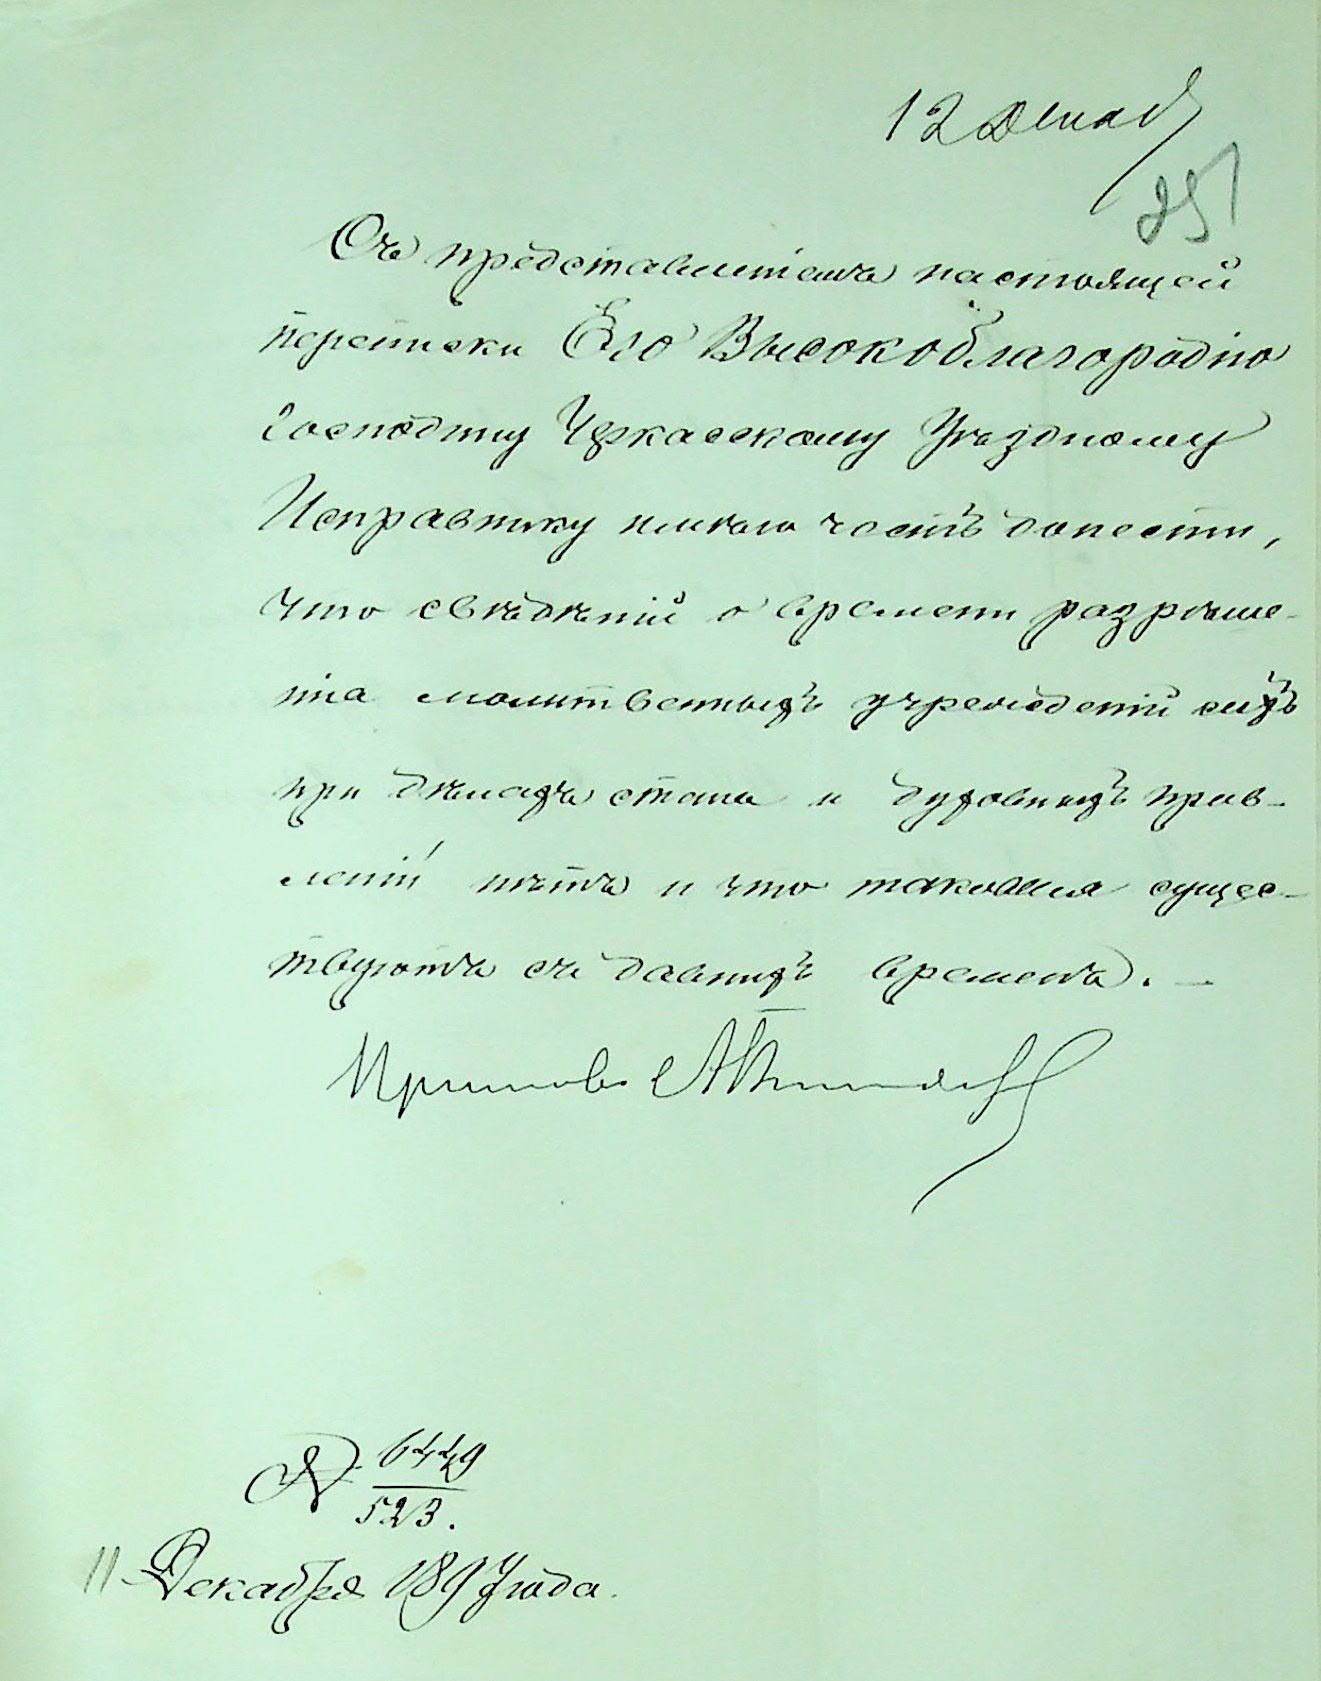 12 Декаб
25
Съ представленіемъ настоящей
переписки Его Высокоблагородію
Господину Черкасскому Уѣздному
Исправнику имѣю честь донести,
что свѣдѣній о времени разрѣше-
нія молитвенныхъ учрежденій сихъ
при дѣлахъ стана и духовныхъ прав-
леній нѣтъ и что таковыя сущес-
твуютъ съ давнихъ временъ. —
Приставъ
№ 6449
523.
11 Декабря 1897 года.